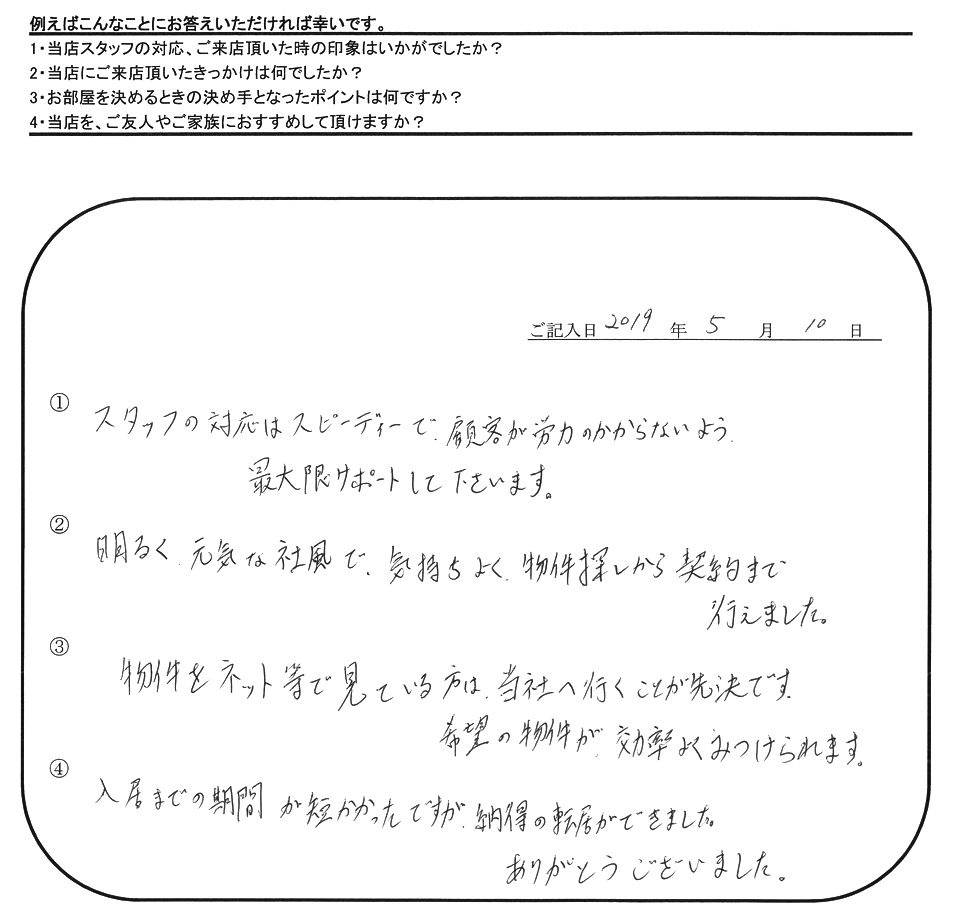 例えばこんなことにお答えいただければ幸いです。
1・当店スタッフの対応、ご来店頂いた時の印象はいかがでしたか？
2・当店にご来店頂いたきっかけは何でしたか？
3・お部屋を決めるときの決め手となったポイントは何ですか？
4・当店を、ご友人やご家族におすすめして頂けますか？
ご記入日 2019 年 5 月 10 日
① スタッフの対応はスピーディーで、顧客が労力のかからないよう、
最大限サポートして下さいます。
② 明るく、元気な社風で、気持ちよく、物件探しから契約まで
行えました。
③ 物件をネット等で見ている方は、当社へ行くことが先決です。
希望の物件が、効率よくみつけられます。
④ 入居までの期間が短かかったですが、納得の転居ができました。
ありがとうございました。